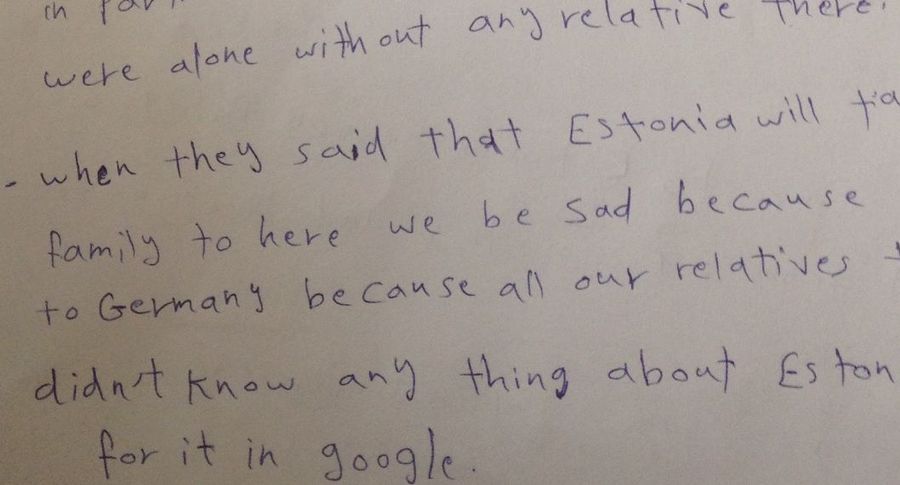 in
were alone without any relative there.
- when they said that Estonia will
family to here we be sad because
to Germany because all our relatives
didn't know any thing about
for it in google.